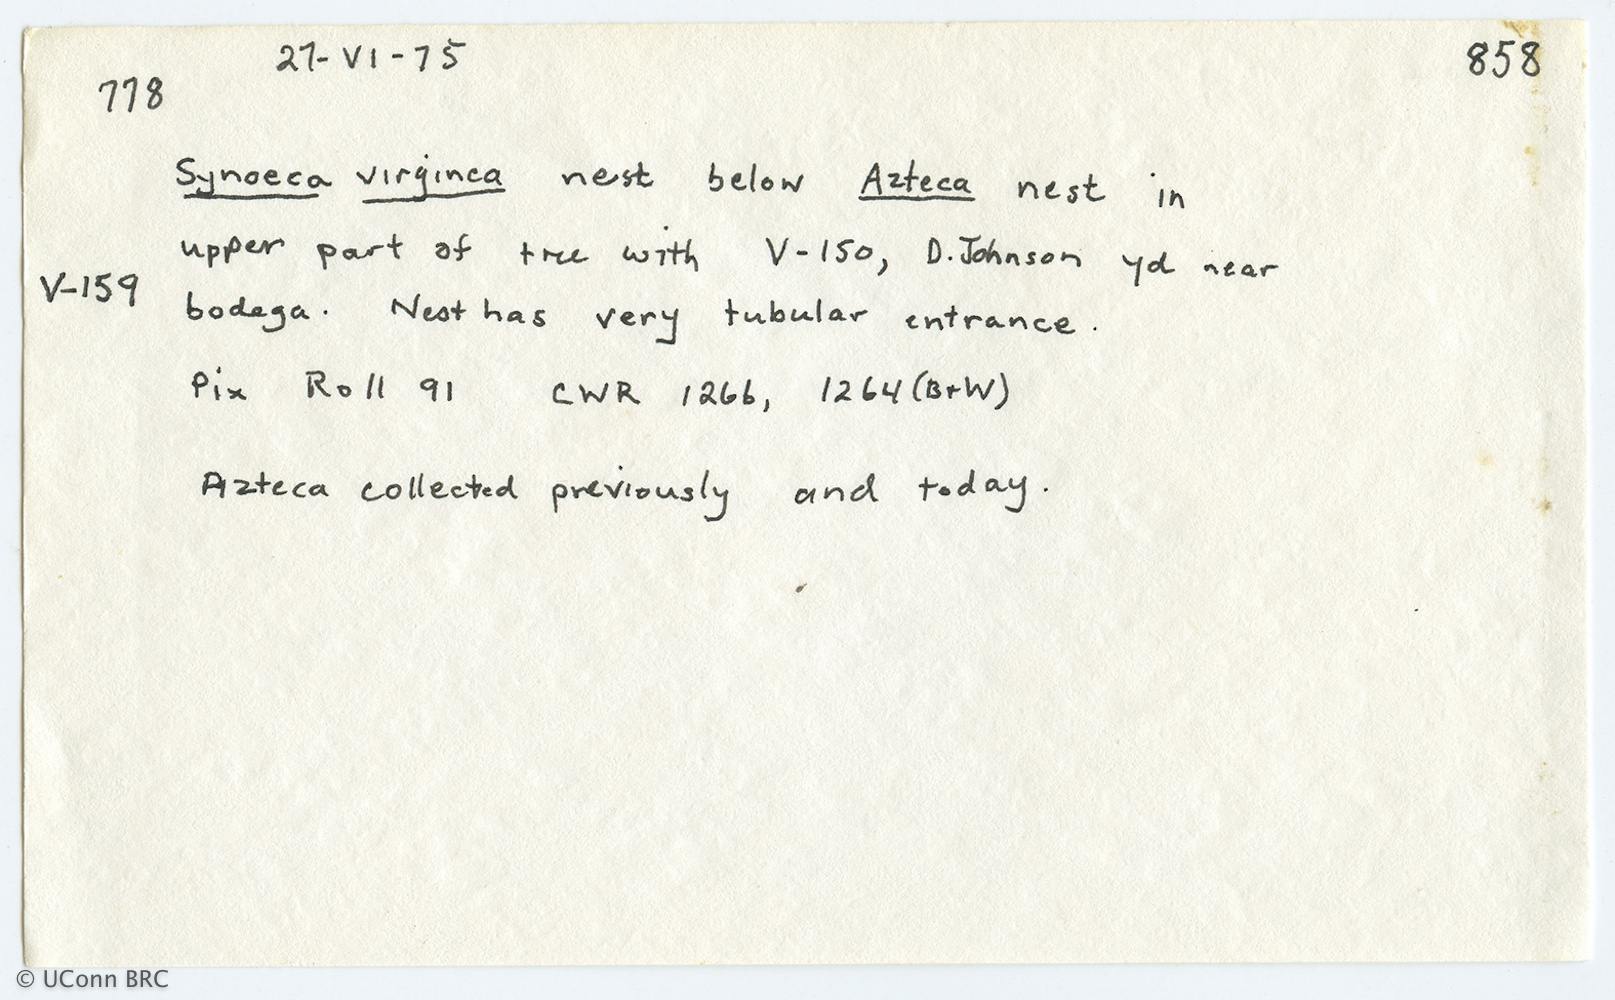 27-VI-75
858
778
Synoeca virginea nest below Azteca nest in
upper part of tree with V-150, D. Johnson yd near
V-159
bodega. Nest has very tubular entrance.
Pix Roll 91 CWR 1266, 1264 (B+W)
Azteca collected previously and today.
© UConn BRC